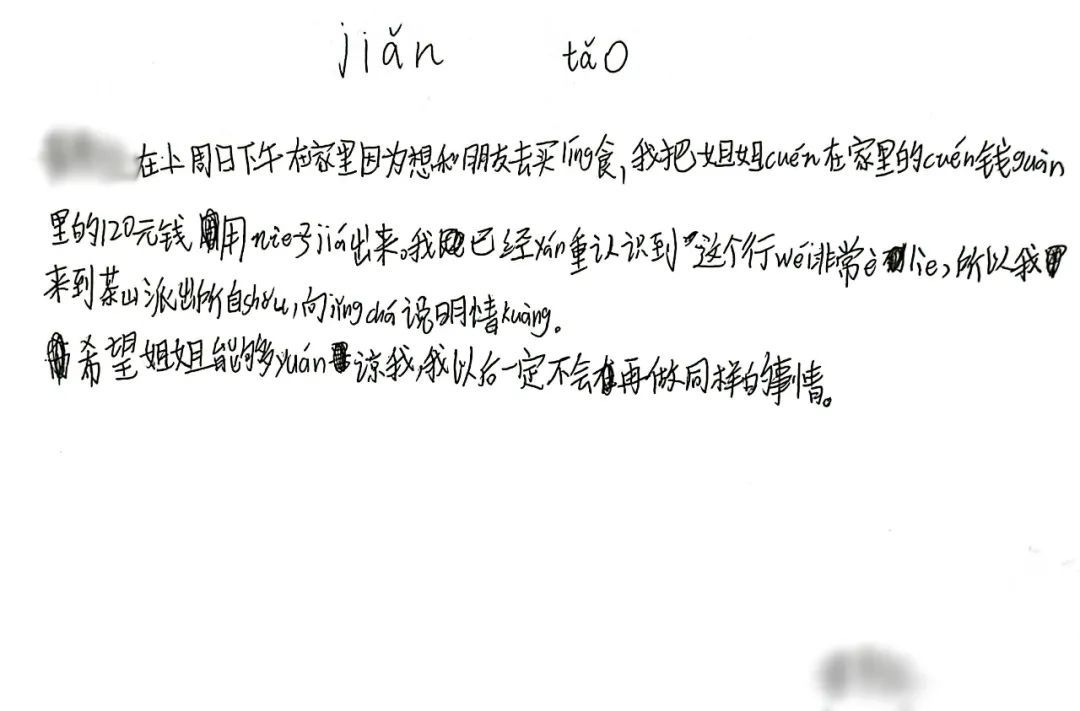 jiǎn tǎo
在上周日下午在家里因为想和朋友去买líng食,我把姐姐cuén在家里的cuén钱guàn
里的120元钱用nie子jiá出来。我已经yán重认识到"这个行wéi非常è lie,所以我
来到茶山派出所自shǒu,向jǐng chá说明情kuàng。
希望姐姐能够yuán谅我,我以后一定不会再做同样的事情。